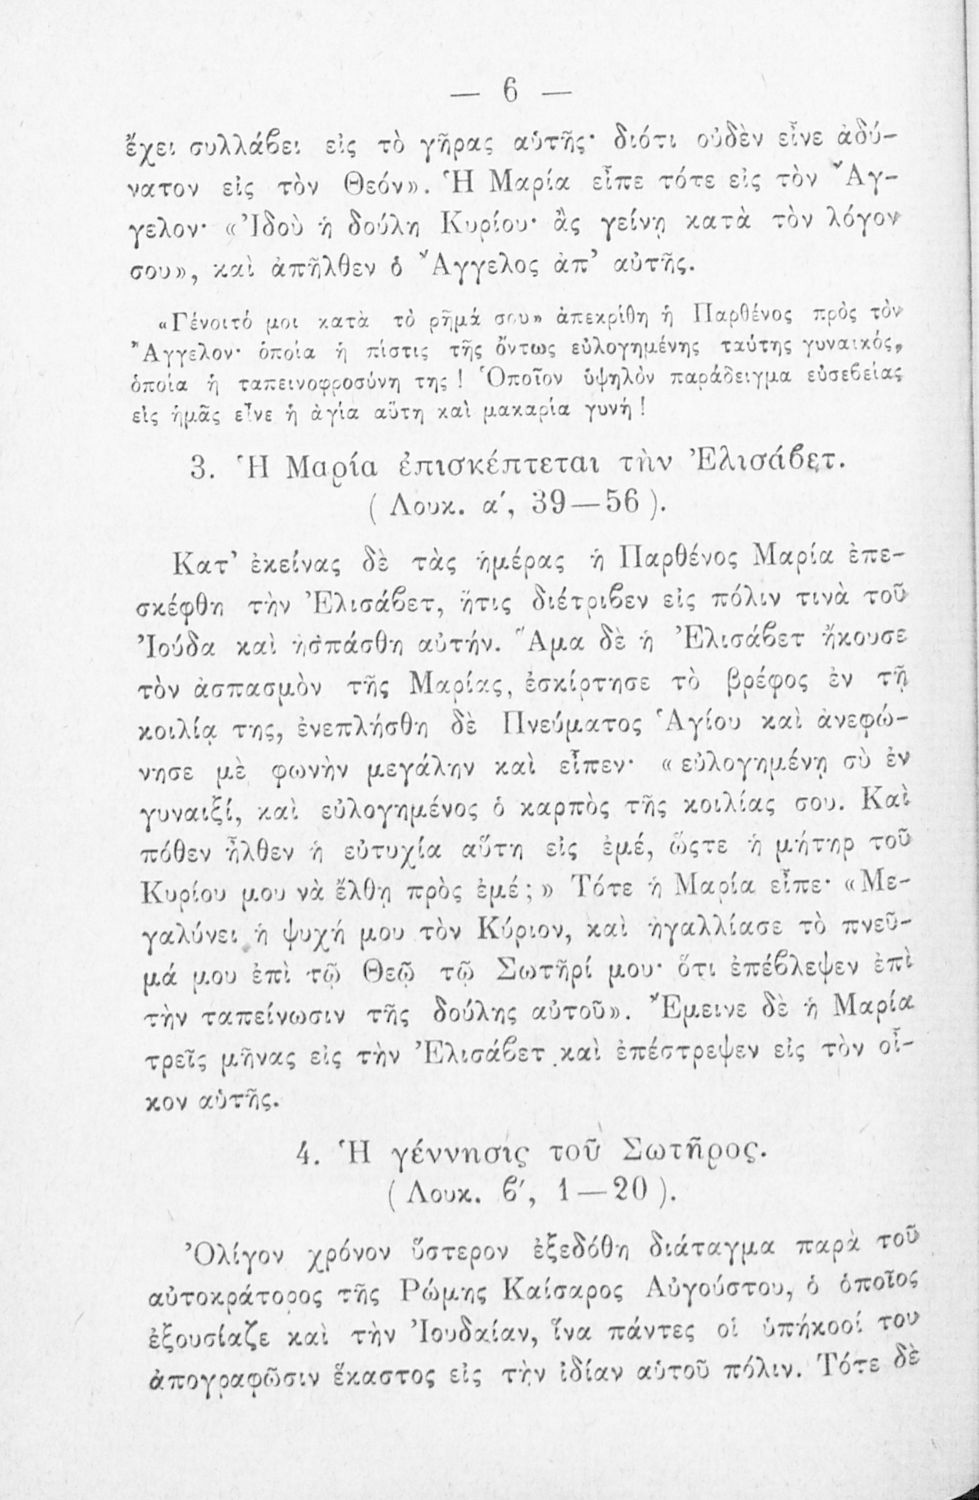 — 6 —
ἔχει συλλάβει εἰς τὸ γῆρας αὑτῆς· διότι οὐδὲν εἶνε ἀδύ-
νατον εἰς τὸν Θεόν». Ἡ Μαρία εἶπε τότε εἰς τὸν Ἄγ-
γελον· «Ἰδοὺ ἡ δούλη Κυρίου· ἂς γείνῃ κατὰ τὸν λόγον
σου», καὶ ἀπῆλθεν ὁ Ἄγγελος ἀπ’ αὐτῆς.
«Γένοιτό μοι κατὰ τὸ ρῆμά σου» ἀπεκρίθη ἡ Παρθένος πρὸς τὸν
Ἄγγελον· ὁποία ἡ πίστις τῆς ὄντως εὐλογημένης ταύτης γυναικός,
ὁποία ἡ ταπεινοφροσύνη της! Ὁποῖον ὑψηλὸν παράδειγμα εὐσεβείας
εἰς ἡμᾶς εἶνε ἡ ἁγία αὕτη καὶ μακαρία γυνή!
3. Ἡ Μαρία ἐπισκέπτεται τὴν Ἐλισάβετ.
(Λουκ. α′, 39—56).
Κατ’ ἐκείνας δὲ τὰς ἡμέρας ἡ Παρθένος Μαρία ἐπε-
σκέφθη τὴν Ἐλισάβετ, ἥτις διέτριβεν εἰς πόλιν τινὰ τοῦ
Ἰούδα καὶ ἠσπάσθη αὐτήν. Ἅμα δὲ ἡ Ἐλισάβετ ἤκουσε
τὸν ἀσπασμὸν τῆς Μαρίας, ἐσκίρτησε τὸ βρέφος ἐν τῇ
κοιλίᾳ της, ἐνεπλήσθη δὲ Πνεύματος Ἁγίου καὶ ἀνεφώ-
νησε μὲ φωνὴν μεγάλην καὶ εἶπεν· «εὐλογημένη σὺ ἐν
γυναιξί, καὶ εὐλογημένος ὁ καρπὸς τῆς κοιλίας σου. Καὶ
πόθεν ἦλθεν ἡ εὐτυχία αὕτη εἰς ἐμέ, ὥςτε ἡ μήτηρ τοῦ
Κυρίου μου νὰ ἔλθῃ πρὸς ἐμέ;» Τότε ἡ Μαρία εἶπε· «Με-
γαλύνει ἡ ψυχή μου τὸν Κύριον, καὶ ἠγαλλίασε τὸ πνεῦ-
μά μου ἐπὶ τῷ Θεῷ τῷ Σωτῆρί μου· ὅτι ἐπέβλεψεν ἐπὶ
τὴν ταπείνωσιν τῆς δούλης αὐτοῦ». Ἔμεινε δὲ ἡ Μαρία
τρεῖς μῆνας εἰς τὴν Ἐλισάβετ καὶ ἐπέστρεψεν εἰς τὸν οἶ-
κον αὑτῆς.
4. Ἡ γέννησις τοῦ Σωτῆρος.
(Λουκ. β′, 1—20).
Ὀλίγον χρόνον ὕστερον ἐξεδόθη διάταγμα παρὰ τοῦ
αὐτοκράτορος τῆς Ρώμης Καίσαρος Αὐγούστου, ὁ ὁποῖος
ἐξουσίαζε καὶ τὴν Ἰουδαίαν, ἵνα πάντες οἱ ὑπήκοοί του
ἀπογραφῶσιν ἕκαστος εἰς τὴν ἰδίαν αὑτοῦ πόλιν. Τότε δὲ